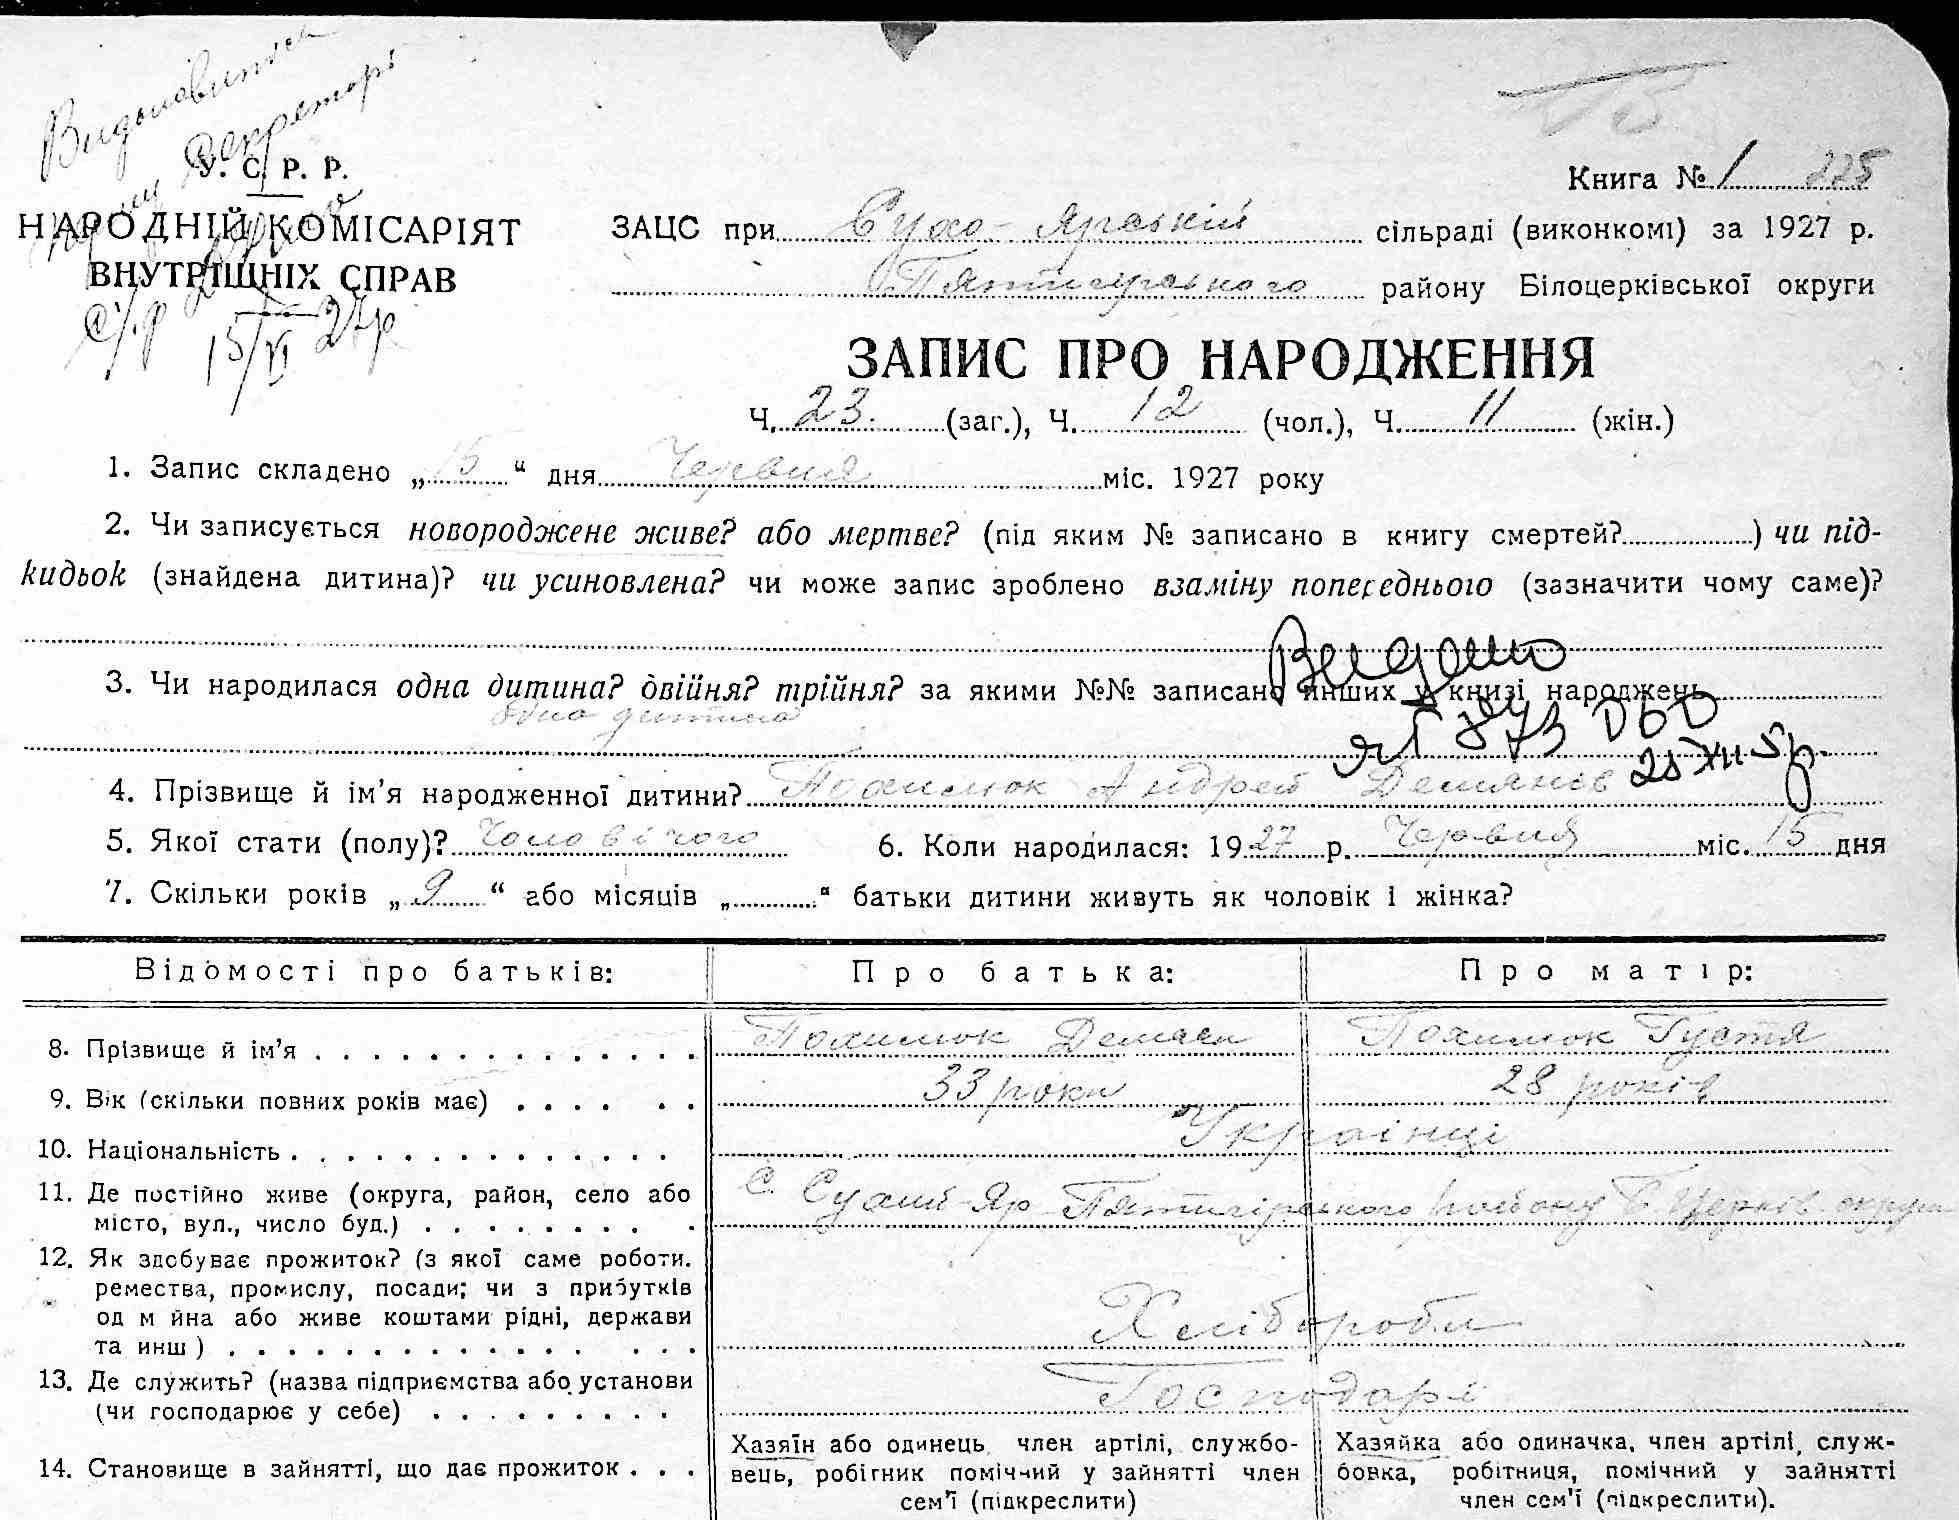 Видано випись
Секретарь
У. С. Р. Р.
НАРОДНІЙ КОМІСАРІЯТ
ВНУТРІШНІХ СПРАВ
с/р
15/VI 27р
Книга № 1 225
ЗАЦС при Сухо-Ярській сільраді (виконкомі) за 1927 р.
Пятигірського району Білоцерківської округи
ЗАПИС ПРО НАРОДЖЕННЯ
Ч. 23. (заг.), Ч. 12 (чол.), Ч. 11 (жін.)
1. Запис складено „15“ дня Червня міс. 1927 року
2. Чи записується новороджене живе? або мертве? (під яким № записано в книгу смертей? ) чи під-
кидьок (знайдена дитина)? чи усиновлена? чи може запис зроблено взаміну попереднього (зазначити чому саме)?
Видано
3. Чи народилася одна дитина? двійня? трійня? за якими №№ записано инших у книзі народжень
одна дитина
4. Прізвище й ім’я народженної дитини? Похилюк Андрей Демянів
5. Якої стати (полу)? Чоловічого 6. Коли народилася: 1927 р. Червня міс. 15 дня
7. Скільки років „9“ або місяців „ “ батьки дитини живуть як чоловік і жінка?
Відомості про батьків: Про батька: Про матір:
8. Прізвище й ім’я Похилюк Демян Похилюк Густя
9. Вік (скільки повних років має) 33 роки 28 років
10. Національність Українці
11. Де постійно живе (округа, район, село або
місто, вул., число буд.) С. Сухий-Яр Пятигірського району Б Церків округи
12. Як здобуває прожиток? (з якої саме роботи.
ремества, промислу, посади; чи з прибутків
од м йна або живе коштами рідні, держави
та инш) Хлібороби
13. Де служить? (назва підприємства або установи
(чи господарює у себе) Господарі
14. Становище в зайнятті, що дає прожиток
Хазяїн або одинець член артілі, службо-
вець, робігник помічний у зайнятті член
сем’ї (підкреслити)
Хазяйка або одиначка, член артілі, служ-
бовка, робітниця, помічний у зайнятті
член сем’ї (підкреслити).